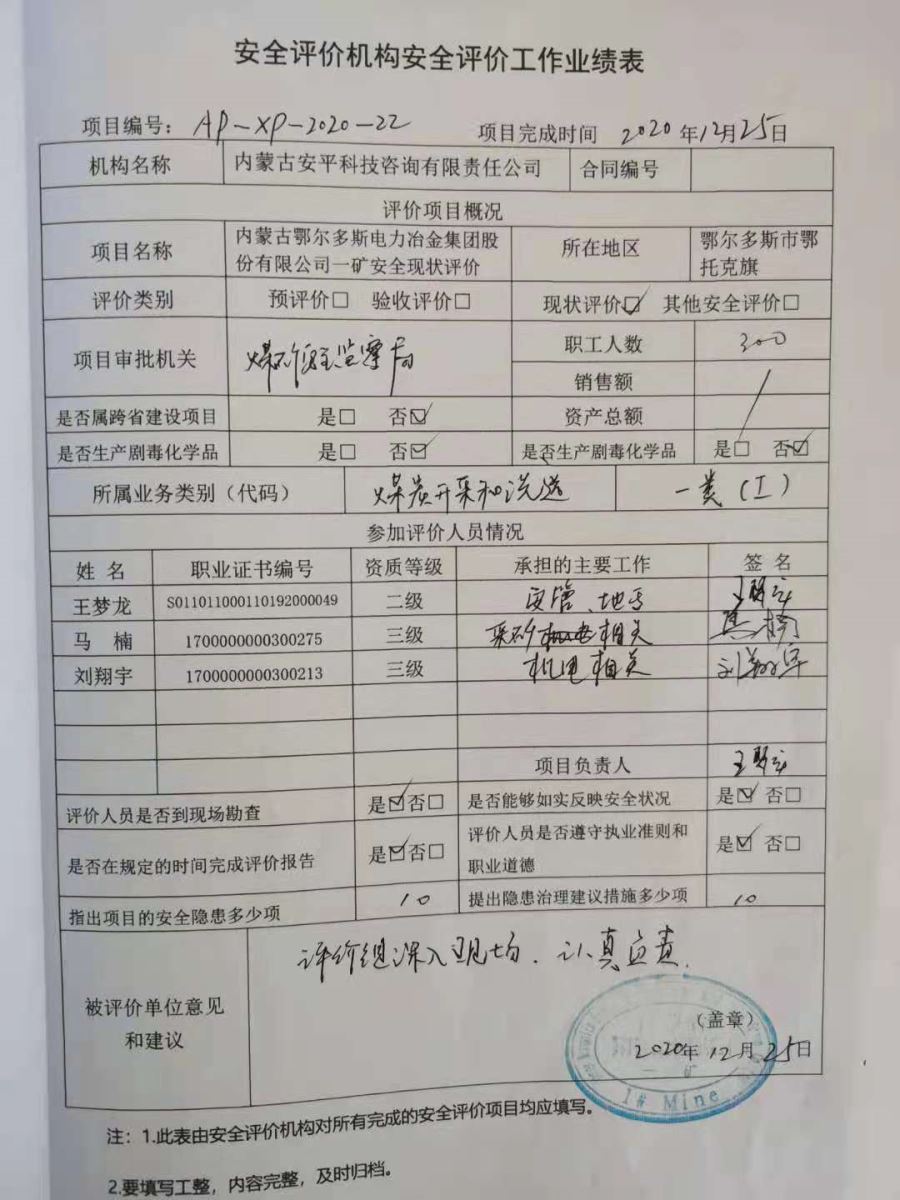 安全评价机构安全评价工作业绩表
项目编号： AP-XP-2020-22 项目完成时间 2020年12月25日
机构名称 内蒙古安平科技咨询有限责任公司 合同编号
评价项目概况
项目名称 内蒙古鄂尔多斯电力冶金集团股份有限公司一矿安全现状评价 所在地区 鄂尔多斯市鄂托克旗
评价类别 预评价□ 验收评价□ 现状评价☑ 其他安全评价□
项目审批机关 煤矿安全监察局 职工人数 300
销售额
是否属跨省建设项目 是□ 否☑ 资产总额
是否生产剧毒化学品 是□ 否☑ 是否生产剧毒化学品 是□ 否☑
所属业务类别（代码） 煤炭开采和洗选 一类（I）
参加评价人员情况
姓 名 职业证书编号 资质等级 承担的主要工作 签 名
王梦龙 S011011000110192000049 二级 安管、地质
马 楠 1700000000300275 三级 采矿 相关 马楠
刘翔宇 1700000000300213 三级 机电相关 刘翔宇
项目负责人
评价人员是否到现场勘查 是☑否□ 是否能够如实反映安全状况 是☑ 否□
是否在规定的时间完成评价报告 是☑否□ 评价人员是否遵守执业准则和职业道德 是☑ 否□
指出项目的安全隐患多少项 10 提出隐患治理建议措施多少项 10
被评价单位意见和建议 评价组深入现场，认真负责.
（盖章）
2020年12月25日
一矿
1# Mine
注：1.此表由安全评价机构对所有完成的安全评价项目均应填写。
2.要填写工整，内容完整，及时归档。